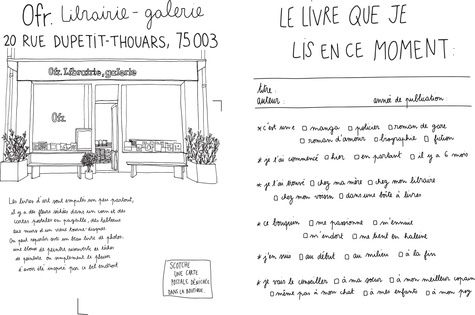 Ofr. Librairie-galerie
20 RUE DUPETIT-THOUARS, 75003
Ofr. Librairie, galerie
Ofr.
Les livres d'art sont empilés un peu partout,
il y a des fleurs séchées dans un coin et des
cartes postales en pagaille, des tableaux
aux murs et un vieux tourne-disques.
On peut repartir avec un beau livre de photos,
une blouse de peintre
ou simplement le plaisir
d'avoir été inspiré par cet bel endroit
SCOTCHE
UNE CARTE
POSTALE DÉNICHÉE
DANS LA BOUTIQUE.
LE LIVRE QUE JE
LIS EN CE MOMENT:
titre:
auteur: année de publication:
* c'est un·e □ manga □ policier □ roman de gare
□ roman d'amour □ biographie □ fiction
* je l'ai commencé □ hier □ en partant □ il y a 6 mois
* je l'ai trouvé □ chez ma mère □ chez mon libraire
□ chez mon voisin □ dans une boîte à livres
* ce bouquin □ me passionne □ m'ennuie
□ m'endort □ me tient en haleine
* j'en suis □ au début □ au milieu □ à la fin
* je vais le conseiller □ à ma sœur □ à mon meilleur copain
□ même pas à mon chat □ à mes enfants □ à mon psy